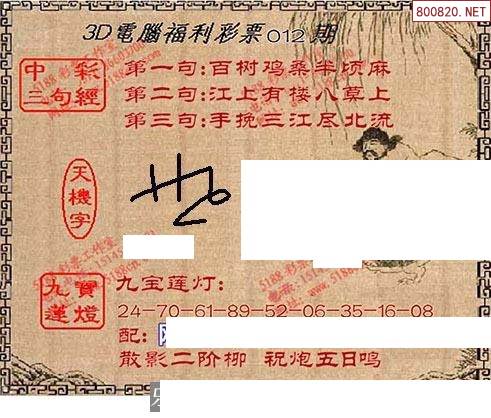 800820.NET
3D電腦福利彩票012期
中彩
三句經
第一句:百树鸡桑半顷麻
第二句:江上有楼八莫上
第三句:手挽三江尽北流
天機字
九寶
蓮燈
九宝莲灯:
24-70-61-89-52-06-35-16-08
配:
散影二阶柳 祝炮五日鸣